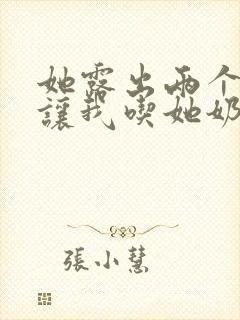 她露出两个
讓我喫她奶
張小慧